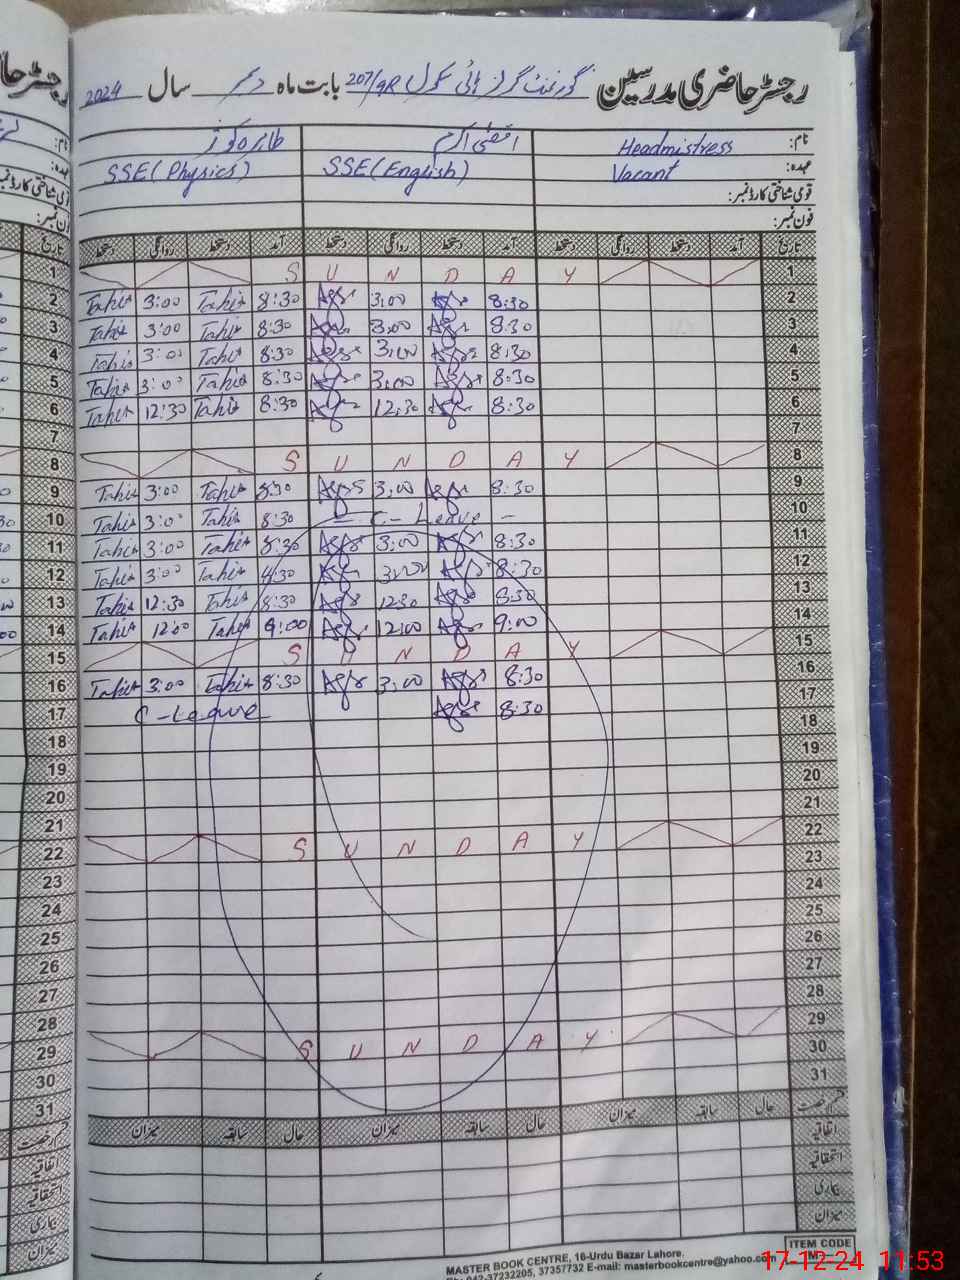 رجسٹر حاضری مدرسین گورنمنٹ گرلز ہائی سکول 207/9R بابت ماہ دسمبر سال 2024
نام: Headmistress اقصیٰ اکرم طاہرہ کوثر
عہدہ: Vacant SSE (English) SSE (Physics)
قومی شناختی کارڈ نمبر:
فون نمبر:
تاریخ آمد دستخط روانگی دستخط آمد دستخط روانگی دستخط آمد دستخط روانگی دستخط تاریخ
1 S U N D A Y 1
2 Tahir 3:00 Tahir 8:30 3:00 8:30 2
3 Tahir 3:00 Tahir 8:30 3:00 8:30 3
4 Tahir 3:00 Tahir 8:30 3:00 8:30 4
5 Tahir 3:00 Tahir 8:30 3:00 8:30 5
6 Tahir 12:30 Tahir 8:30 12:30 8:30 6
7 7
8 S U N D A Y 8
9 Tahir 3:00 Tahir 8:30 3:00 8:30 9
10 Tahir 3:00 Tahir 8:30 - C - Leave - 10
11 Tahir 3:00 Tahir 8:30 3:00 8:30 11
12 Tahir 3:00 Tahir 4:30 3:00 8:30 12
13 Tahir 12:30 Tahir 8:30 12:30 8:30 13
14 Tahir 12:00 Tahir 9:00 12:00 9:00 14
15 S U N D A Y 15
16 Tahir 3:00 Tahir 8:30 3:00 8:30 16
17 C - Leave 8:30 17
18 18
19 19
20 20
21 21
22 S U N D A Y 22
23 23
24 24
25 25
26 26
27 27
28 28
29 S U N D A Y 29
30 30
31 31
قسم رخصت حال سابقہ میزان حال سابقہ میزان حال سابقہ میزان قسم رخصت
اتفاقیہ اتفاقیہ
استحقاقیہ استحقاقیہ
بیماری بیماری
میزان میزان
ITEM CODE
MASTER BOOK CENTRE, 16-Urdu Bazar Lahore.
Ph: 042-37232205, 37357732 E-mail: masterbookcentre@yahoo.com
17-12-24 11:53